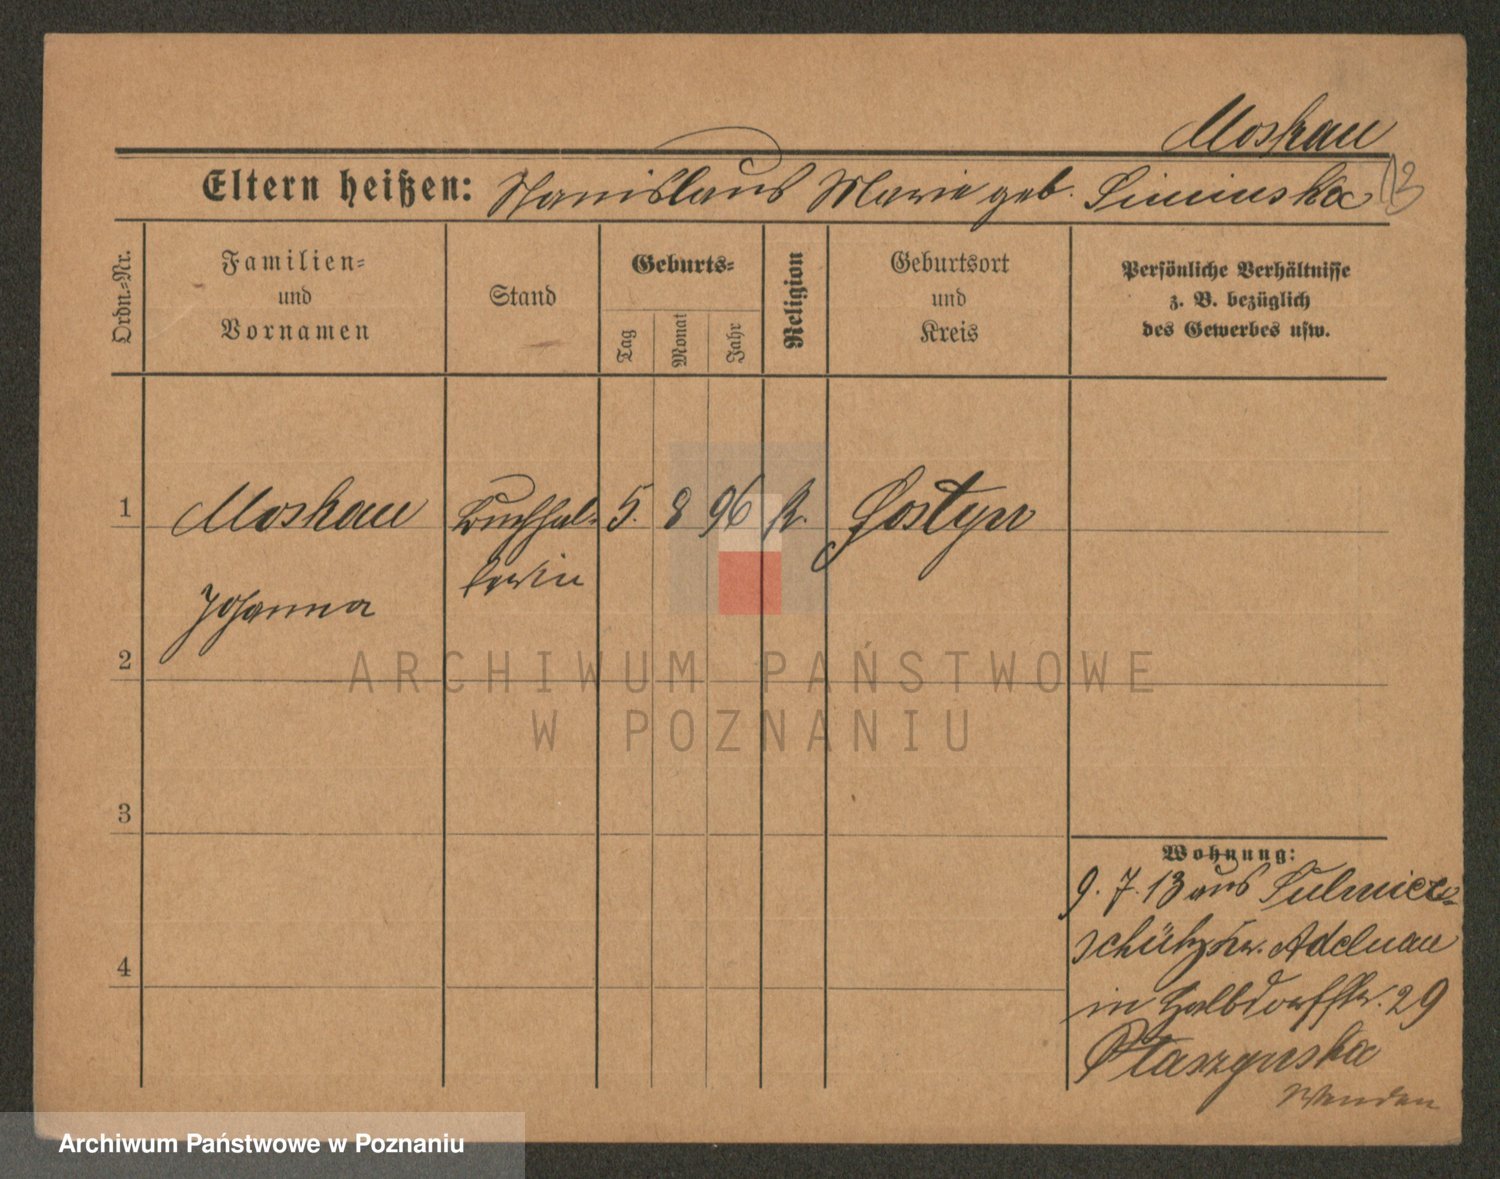 Moskau
Eltern heißen: Stanislaus Marie geb. Siminska
13
Ordn.-Nr.
Familien-
und
Vornamen
Stand
Geburts-
Tag
Monat
Jahr
Religion
Geburtsort
und
Kreis
Persönliche Verhältnisse
z. B. bezüglich
des Gewerbes usw.
1
Moskau
Buchhal-
terin
5. 8 96 K. Gostyn
Johanna
2
ARCHIWUM PAŃSTWOWE
W POZNANIU
3
4
Wohnung:
9. 7. 13 aus Sulmier-
schütz Kr. Adelnau
in Halbdorfstr. 29
Ptaszynska
Wenden
Archiwum Państwowe w Poznaniu